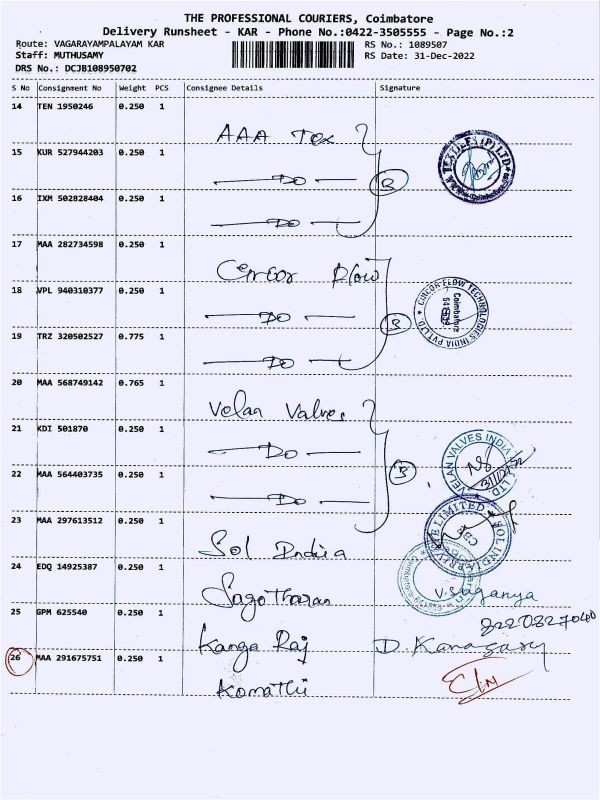 THE PROFESSIONAL COURIERS, Coimbatore
Delivery Runsheet - KAR - Phone No.:0422-3505555 - Page No.:2
Route: VAGARAYAMPALAYAM KAR RS No.: 1089507
Staff: MUTHUSAMY RS Date: 31-Dec-2022
DRS No.: DCJB108950702
S No Consignment No Weight PCS Consignee Details Signature
14 TEN 1950246 0.250 1 AAA Tex
15 KUR 527944203 0.250 1 Do 3
16 IXM 502828404 0.250 1 Do
17 MAA 282734598 0.250 1 Circor Flow
18 VPL 940310377 0.250 1 Do 3
19 TRZ 320502527 0.775 1 Do
20 MAA 568749142 0.765 1 Velan Valves
21 KDI 501870 0.250 1 Do
22 MAA 564403735 0.250 1 Do 3
23 MAA 297613512 0.250 1 Sol India
24 EDQ 14925387 0.250 1 V. Suganya
25 GPM 625540 0.250 1 Kanga Raj D.
26 MAA 291675751 0.250 1 Komathi
CIRCOR FLOW TECHNOLOGIES INDIA PVT LTD. Coimbatore
VELAN VALVES INDIA LTD
SOL INDIA PRIVATE LIMITED